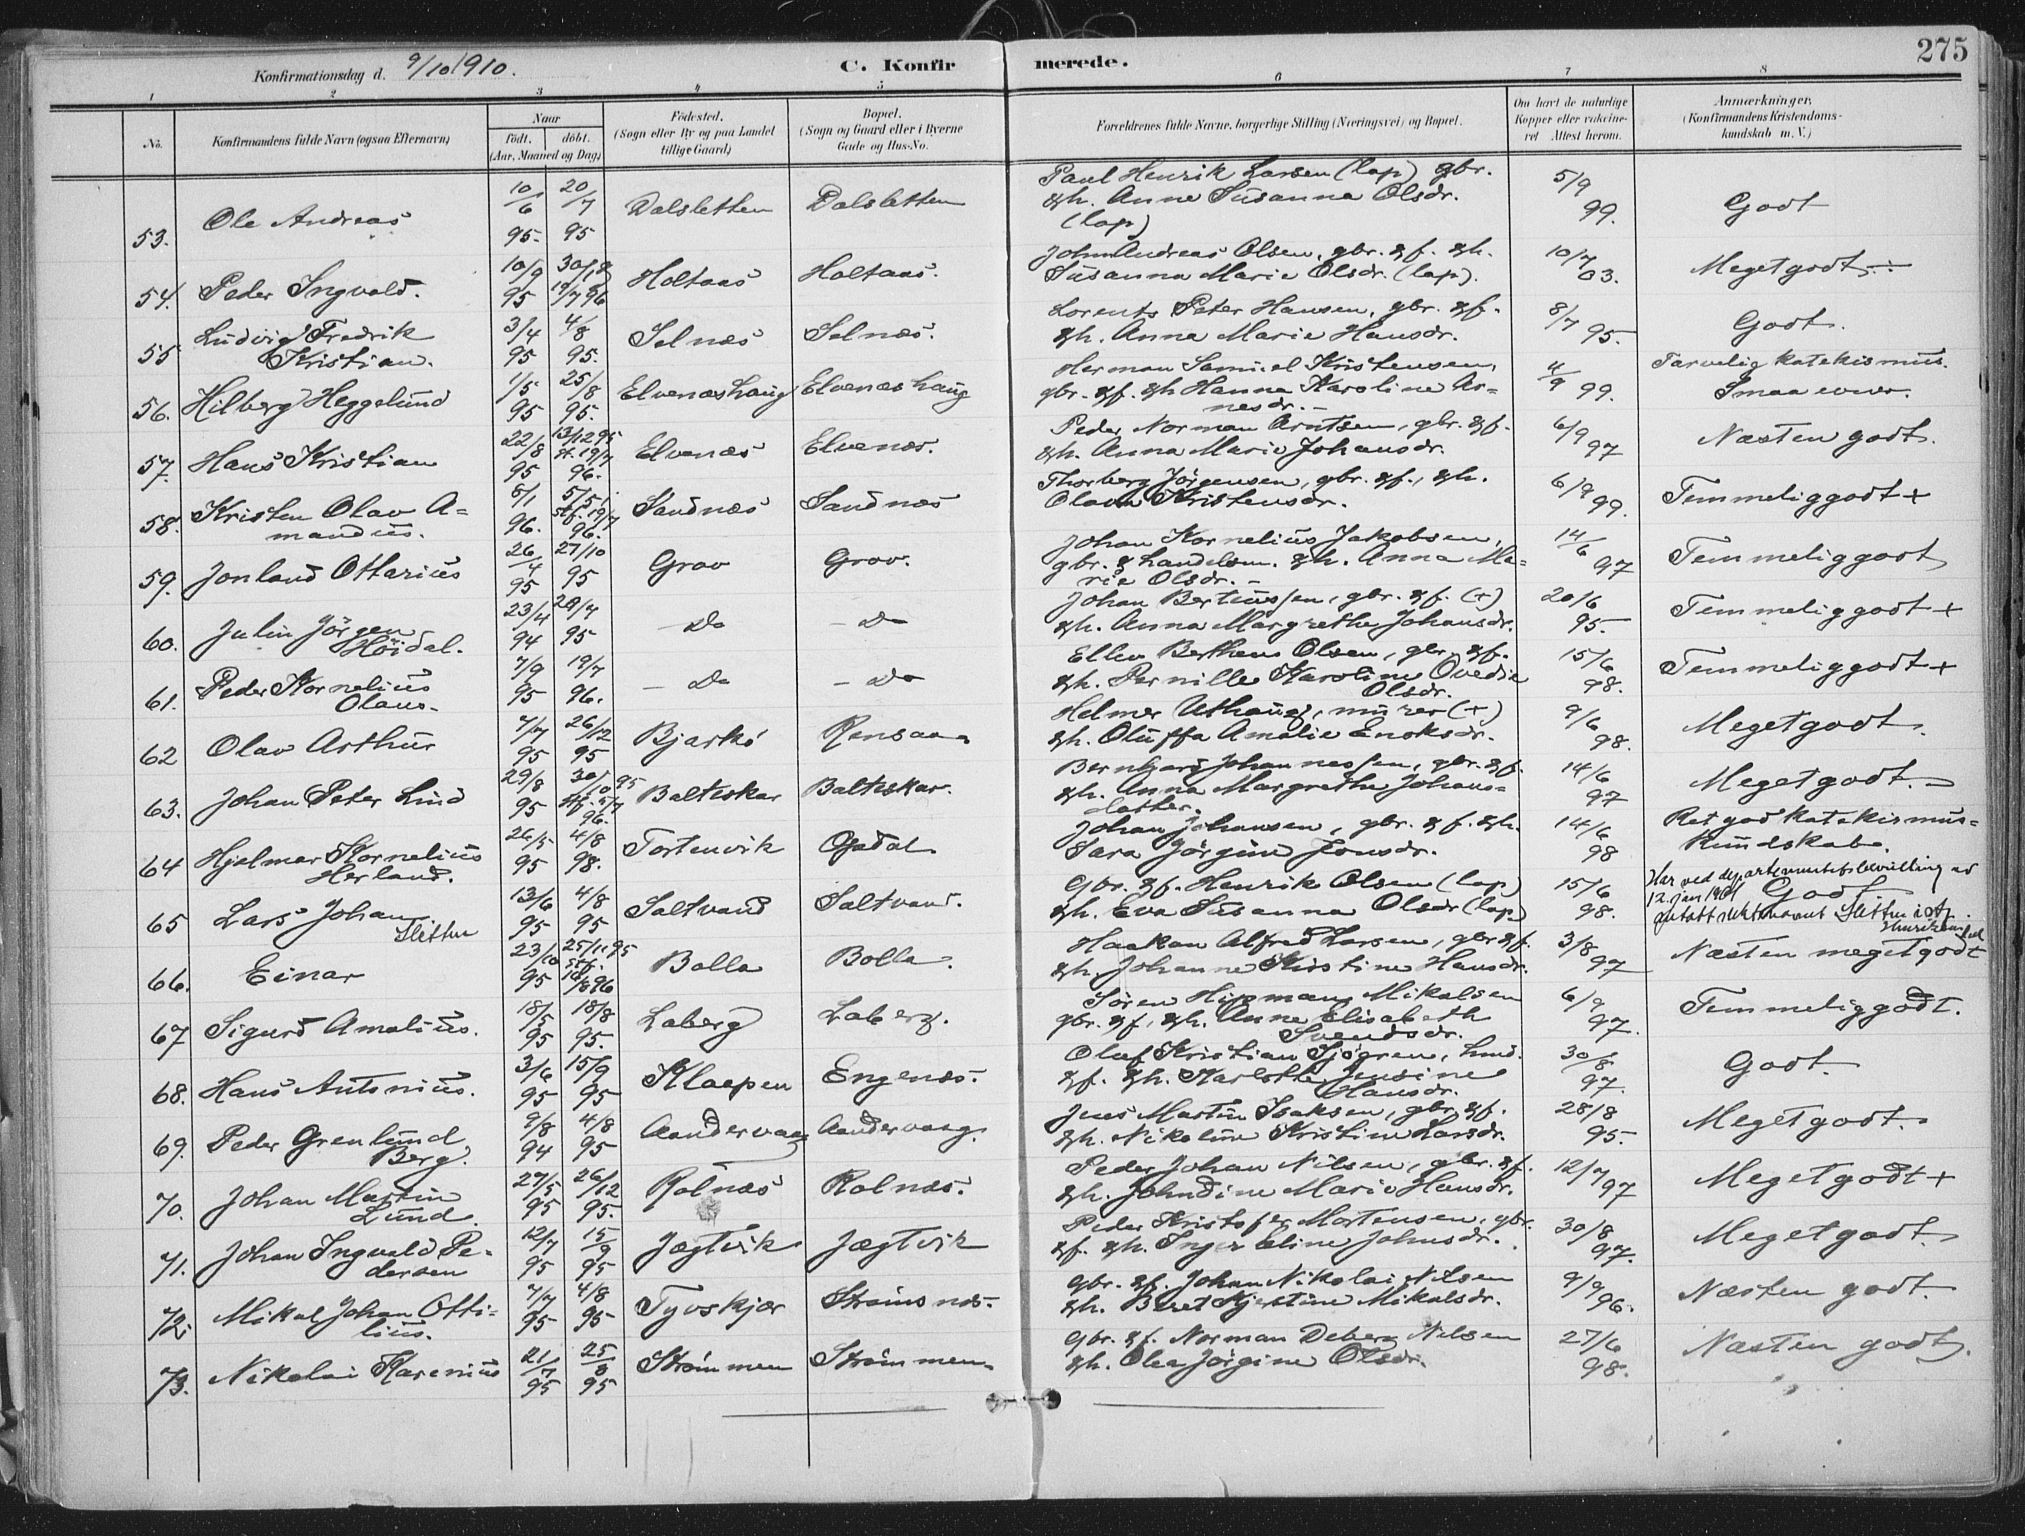 275
Konfirmationsdag d. 9/10 1910.
C. Konfirmerede.
1 2 3 4 5 6 7 8
No.
Konfirmandens fulde Navn (ogsaa Efternavn)
Naar
födt. döbt.
(Aar, Maaned og Dag)
Födested.
(Sogn eller By og paa Landet
tillige Gaard)
Bopæl.
(Sogn og Gaard eller i Byerne
Gade og Hus-No.
Forældrenes fulde Navne, borgerlige Stilling (Næringsvei) og Bopæl.
Om havt de naturlige
Kopper eller vaccine-
ret Attest herom.
Anmærkninger.
(Konfirmandens Kristendoms-
kundskab m. V.)
53. Ole Andreas 10/6 95. 20/7 95 Dalsletten Dalsletten
Paul Henrik Larsen (lap) gbr.
&h. Anne Susanna Olsdr.
(lap)
5/9 99. Godt
54. Peder Ingvald. 10/9 95 30/12 19/7 96 Holtaas Holtaas.
Johan Andreas Olsen, gbr. &f. &h.
Susanna Marie Olsdr. (lap).
10/7 03. Meget godt
55 Ludvig Fredrik
Kristian. 3/4 95 4/8 95. Selnæs Selnæs.
Lorents Peter Hansen, gbr. &f.
&h. Anna Marie Hansdr.
8/7 95. Godt.
56. Hilberg Heggelund 1/5 95 25/8 95. Elvenæshaug Elvenæshaug
Herman Samuel Kristensen,
gbr. &f. &h Hanna Karoline Ar-
nesdr.
4/9 99. Tarvelig katekismus.
Smaa evner.
57. Hans Kristian 22/8 95 13/12 95 st. 19/7 96. Elvenæs Elvenæs.
Peder Norman Arntsen, gbr. &f.
&h. Anna Marie Johansdr.
6/9 97 Næsten godt.
58. Kristen Olav A-
mandius. 8/1 96. 5/5 stf. 19/7 96. Sandnæs Sandnæs
Thorberg Jörgensen, gbr. &f., &h.
Olava Kristensdr.
6/9 99. Temmelig godt +
59. Jonland Ottarius 26/4 95 27/10 95 Grov Grov.
Johan Kornelius Jakobsen,
gbr. & handelsm. &h. Anna Ma-
rie Olsdr. -
14/6 97 Temmelig godt
60. Julin Jörgen
Höidal. 23/4 94 28/7 95 - Do - Do
Johan Bertiussen, gbr. &f. (+)
&h. Anna Margrethe Johansdr.
20/6 95. Temmelig godt +
61. Peder Kornelius
Olaus. 7/9 95 19/7 96. - Do - Do
Ellev Bertheus Olsen, gbr. &f.
&h. Pernille Karoline Ovedie
Olsdr.
15/6 98. Temmelig godt +
62 Olav Arthur 7/7 95 26/12 95 Bjarkö Rensaa
Helmer Uthaug, murer (+)
&h. Oluffa Amalie Enoksdr.
9/6 98. Meget godt.
63. Johan Peter Lind 29/8 95 30/10 95 stf. 5/7 96. Balteskar Balteskar.
Bernhard Johannessen, gbr. &f.
&h. Anna Margrethe Johans-
datter.
14/6 97 Meget godt. -
64 Hjalmar Kornelius
Herland. 26/5 95 4/8 98. Tortenvik Opdal
Johan Johansen, gbr. &f. &h.
Sara Jörgine Jonsdr.
14/6 98 Ret god katekismus-
kundskab.
65 Lars Johan
Sletten 13/6 95 4/8 95 Saltvand Saltvand.
Gbr. &f. Henrik Olsen (lap)
&h. Eva Susanna Olsdr (lap)
15/6 98. Har ved departementsbevilling av
12. jan 1901 Godt.
antatt slektsnavnet Sletten
66. Einar 23/10 95 25/11 95 stf. 19/8 96 Bolla Bolla.
Haakan Alfred Larsen, gbr &f.
&h. Johanne Kirstine Hansdr.
3/8 97 Næsten meget godt
67 Sigurd Amalius. 18/5 95 18/8 95. Laberg Laberg.
Sören Hipman Mikalsen
gbr. &f. &h. Anne Elisabeth
Svendsdr.
6/9 97. Temmelig godt.
68. Hans Antonius. 3/6 95 15/9 95 Kløppen Engenæs.
Oluf Kristian Sjögren, hmd.
&f. &h. Karlotte Jensine
Hansdr.
30/8 97. Godt.
69. Peder Grenlund
Berg. 9/8 94 4/8 95 Aandervaag Aandervaag.
Jens Martin Isaksen, gbr. &f.
&h. Nikoline Kristine Larsdr.
28/8 95. Meget godt.
70. Johan Martin
Lund. 27/5 95 26/12 95. Rolnæs Rolnæs.
Peder Johan Nilsen, gbr. &f.
&h. Johndine Marie Hansdr.
12/7 97 Meget godt +
71. Johan Ingvald Pe-
dersen 12/7 95 15/9 95 Jægtvik Jægtvik
Peder Kristofer Mortensen, gbr.
&f. &h. Inger Eline Johnsdr.
30/8 97. Meget godt.
72. Mikal Johan Otti-
lius. 7/7 95 4/8 95 Tyvskjær Strömsnæs.
Gbr. &f. Johan Nikolai Nilsen
&h. Beret Kjerstine Mikalsdr.
9/9 96. Næsten godt.
73. Nikolai Karenius 21/7 95 25/8 95 Strömmen Strömmen.
Gbr. &f. Norman Deberg Nilsen
&h. Olea Jörgine Olsdr.
27/6 98. Næsten godt.